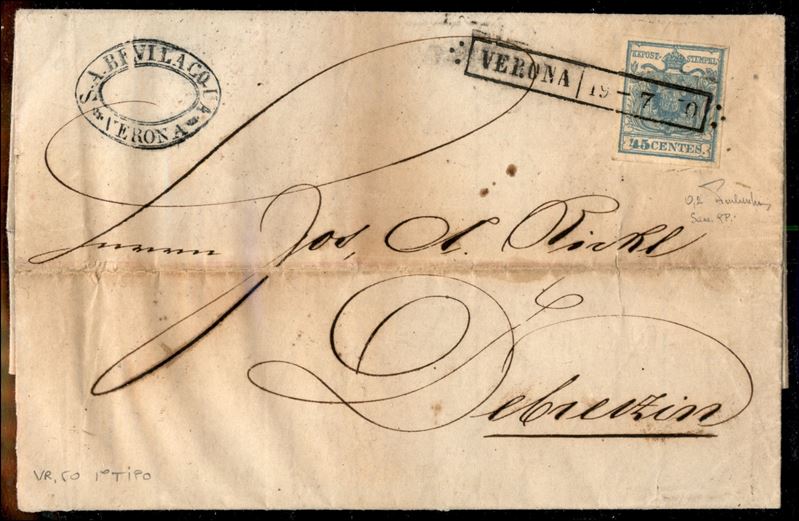 S. A. BEVILACQUA
VERONA
VERONA 19 - 7 0
KKPOST-STEMPEL
45 CENTES.
Herrn Jos. N. Rickl
Debreczin
VR, 50 1° TIPO